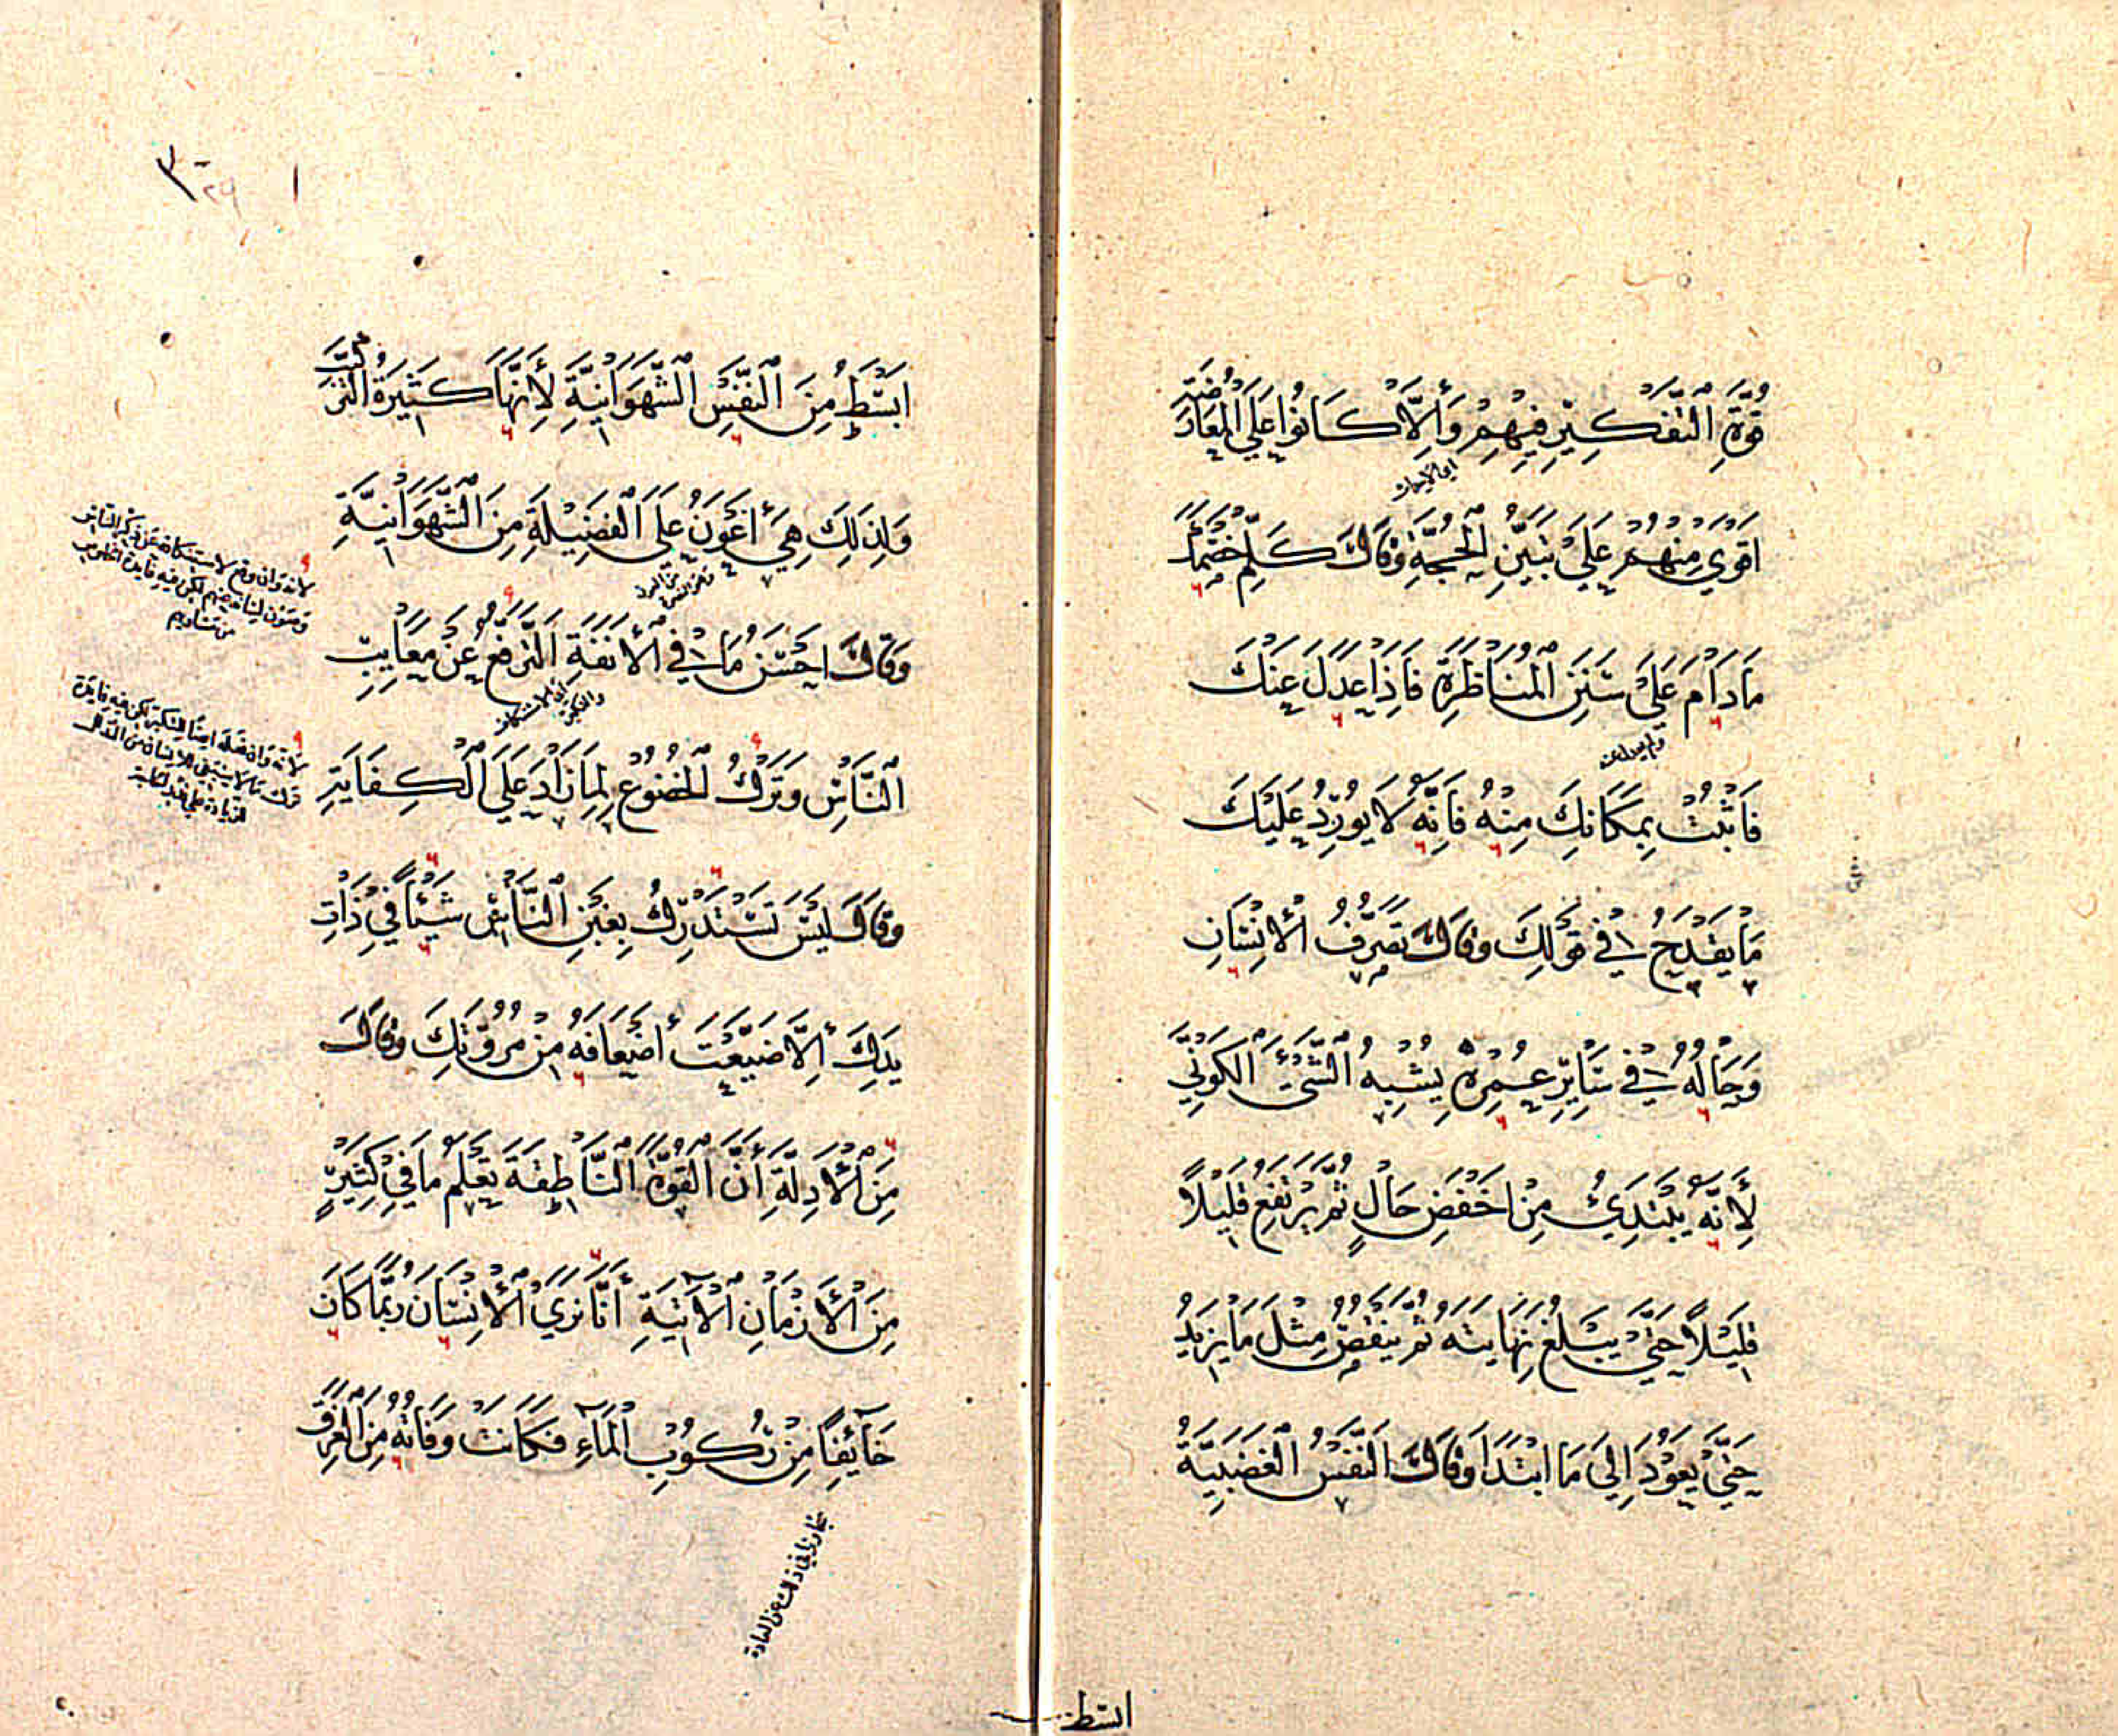 قُوَّةِ التَّفْكِيرِ فِيهِمْ وَإِلَّا كَانُوا عَلَى الْمُعَارَضَةِ
أَقْوَى مِنْهُمْ عَلَى تَبَيُّنِ الْحُجَّةِ وَقَالَ كَلِّمْ خَصْمًا
مَا دَامَ عَلَى سَنَنِ الْمُنَاظَرَةِ فَإِذَا عَدَلَ عَنْكَ
فَاثْبُتْ بِمَكَانِكَ مِنْهُ فَإِنَّهُ لَا يُورِدُ عَلَيْكَ
مَا يَقْدَحُ فِي قَوْلِكَ وَقَالَ تَصَرُّفُ الْإِنْسَانِ
وَحَالُهُ فِي سَائِرِ عُمُرِهِ يُشْبِهُ الشَّيْءَ الْكَوْنِيَّ
لِأَنَّهُ يَبْتَدِئُ مِنْ أَخْفَضِ حَالٍ ثُمَّ يَرْتَفِعُ قَلِيلًا
قَلِيلًا حَتَّى يَبْلُغَ نِهَايَتَهُ ثُمَّ يَنْقُصُ مِثْلَ مَا يَزِيدُ
حَتَّى يَعُودَ إِلَى مَا ابْتَدَأَ وَقَالَ النَّفْسُ الْغَضَبِيَّةُ
ابسط
ابْسَطُ مِنَ النَّفْسِ الشَّهْوَانِيَّةِ لِأَنَّهَا كَثِيرَةُ التَّرَكُّبِ
وَلِذَلِكَ هِيَ أَعْوَنُ عَلَى الْفَضِيلَةِ مِنَ الشَّهْوَانِيَّةِ
وَقَالَ احْسَنُ مَا فِي الْأَنَفَةِ التَّرَفُّعُ عَنْ مَعَايِبِ
النَّاسِ وَتَرْكُ الْخُضُوعِ لِمَا زَادَ عَلَى الْكِفَايَةِ
وَقَالَ لَيْسَ تَسْتَدْرِكُ بِغَبْنِ النَّاسِ شَيْئًا فِي ذَاتِ
يَدِكَ إِلَّا ضَيَّعْتَ أَضْعَافَهُ مِنْ مُرُوَّتِكَ وَقَالَ
مِنَ الْأَدِلَّةِ أَنَّ الْقُوَّةَ النَّاطِقَةَ تَعْلَمُ مَا فِي كَثِيرٍ
مِنَ الْأَزْمَانِ الْآتِيَةِ أَنَّا نَرَى الْإِنْسَانَ رُبَّمَا كَانَ
خَائِفًا مِنْ رُكُوبِ الْمَاءِ فَكَانَتْ وَفَاتُهُ مِنَ الْغَرَقِ